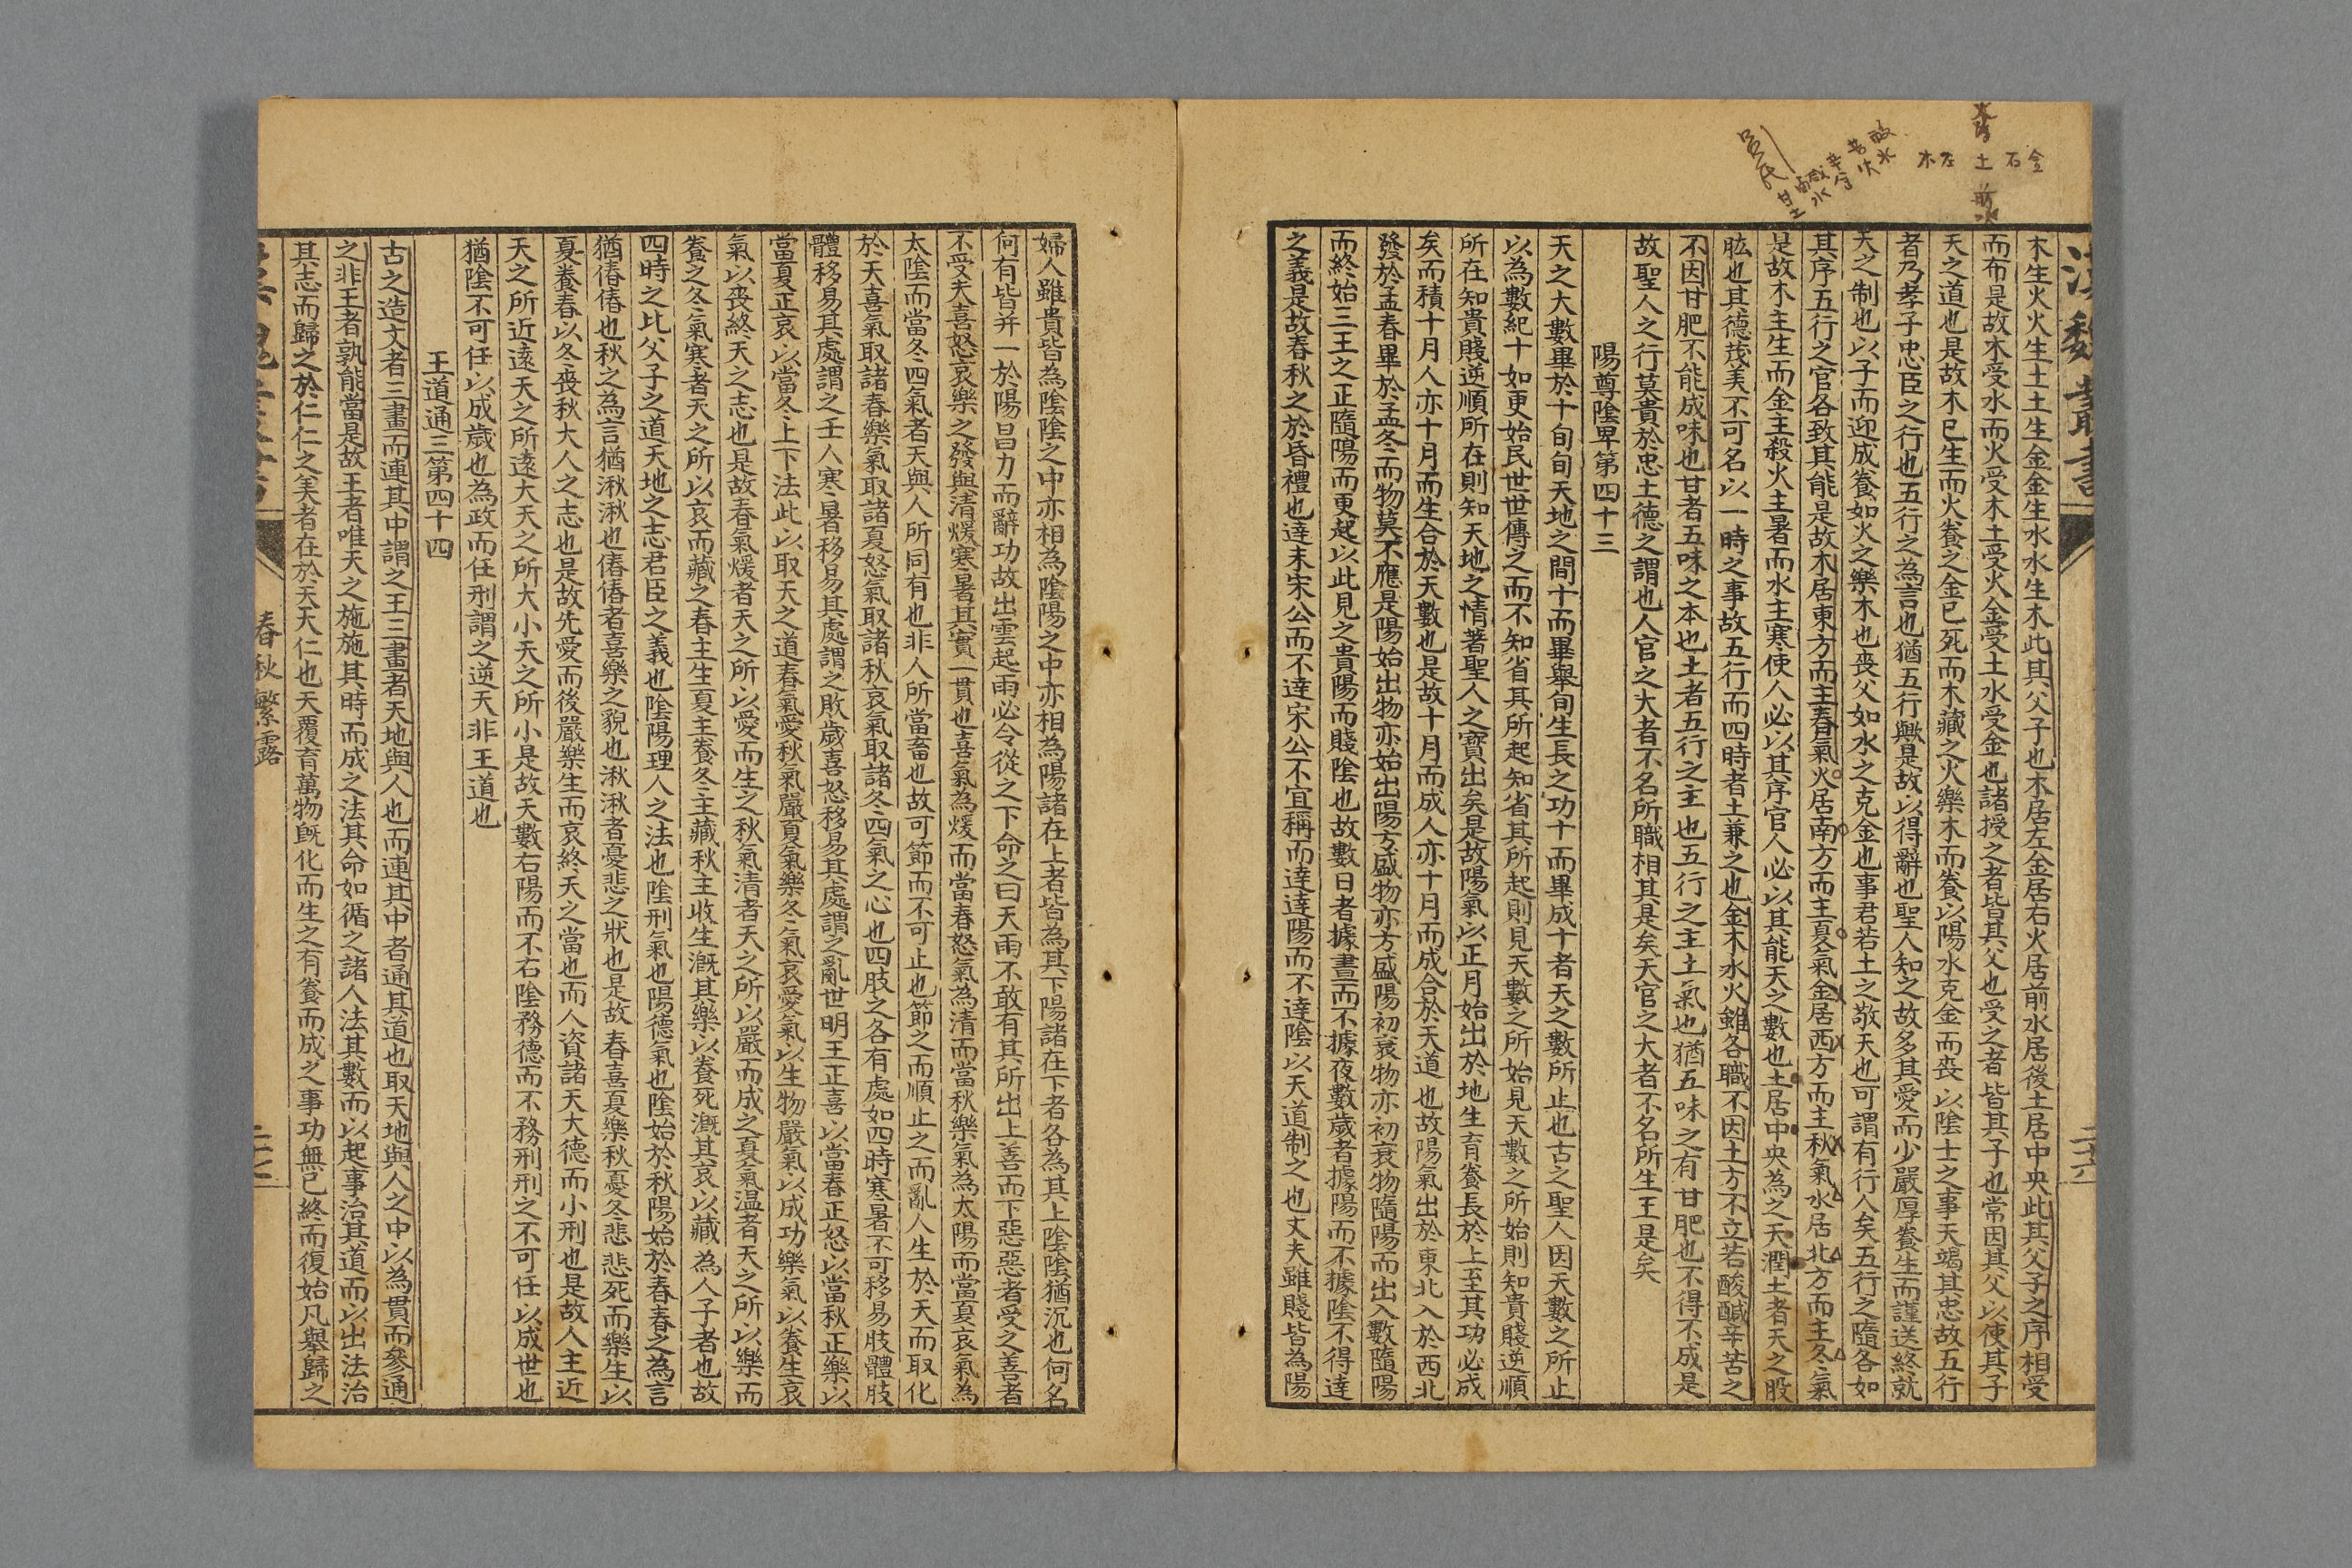 木生火火生土土生金金生水水生木此其父子也木居左金居右火居前水居後土居中央此其父子之序相受
而布是故木受水而火受木土受火金受土水受金也諸授之者皆其父也受之者皆其子也常因其父以使其子
天之道也是故木已生而火養之金已死而木藏之火樂木而養以陽水克金而喪以陰土之事天竭其忠故五行
者乃孝子忠臣之行也五行之為言也猶五行歟是故以得辭也聖人知之故多其愛而少嚴厚養生而謹送終就
天之制也以子而迎成養如火之樂木也喪父如水之克金也事君若土之敬天也可謂有行人矣五行之隨各如
其序五行之官各致其能是故木居東方而主春氣火居南方而主夏氣金居西方而主秋氣水居北方而主冬氣
是故木主生而金主殺火主暑而水主寒使人必以其序官人必以其能天之數也土居中央為之天潤土者天之股
肱也其德茂美不可名以一時之事故五行而四時者土兼之也金木水火雖各職不因土方不立若酸鹹辛苦之
不因甘肥不能成味也甘者五味之本也土者五行之主也五行之主土氣也猶五味之有甘肥也不得不成是
故聖人之行莫貴於忠土德之謂也人官之大者不名所職相其是矣天官之大者不名所生王是矣
陽尊陰卑第四十三
天之大數畢於十旬旬天地之間十而畢舉旬生長之功十而畢成十者天之數所止也古之聖人因天數之所止
以為數紀十如更始民世世傳之而不知省其所起知省其所起則見天數之所始見天數之所始則知貴賤逆順
所在知貴賤逆順所在則知天地之情著聖人之寶出矣是故陽氣以正月始出於地生育養長於上至其功必成
矣而積十月人亦十月而生合於天數也是故十月而成人亦十月而成合於天道也故陽氣出於東北入於西北
發於孟春畢於孟冬而物莫不應是陽始出物亦始出陽方盛物亦方盛陽初衰物亦初衰物隨陽而出入數隨陽
而終始三王之正隨陽而更起以此見之貴陽而賤陰也故數日者據晝而不據夜數歲者據陽而不據陰不得達
之義是故春秋之於昏禮也達末宋公而不達宋公不宜稱而達達陽而不達陰以天道制之也丈夫雖賤皆為陽
婦人雖貴皆為陰陰之中亦相為陰陽之中亦相為陽諸在上者皆為其下陽諸在下者各為其上陰陰猶沉也何名
何有皆并一於陽昌力而辭功故出雲起雨必令從之下命之曰天雨不敢有其所出上善而下惡惡者受之善者
不受夫喜怒哀樂之發與清煖寒暑其實一貫也喜氣為煖而當春怒氣為清而當秋樂氣為太陽而當夏哀氣為
太陰而當冬四氣者天與人所同有也非人所當畜也故可節而不可止也節之而順止之而亂人生於天而取化
於天喜氣取諸春樂氣取諸夏怒氣取諸秋哀氣取諸冬四氣之心也四肢之各有處如四時寒暑不可移易肢體肢
體移易其處謂之壬人寒暑移易其處謂之敗歲喜怒移易其處謂之亂世明王正喜以當春正怒以當秋正樂以
當夏正哀以當冬上下法此以取天之道春氣愛秋氣嚴夏氣樂冬氣哀愛氣以生物嚴氣以成功樂氣以養生哀
氣以喪終天之志也是故春氣煖者天之所以愛而生之秋氣清者天之所以嚴而成之夏氣温者天之所以樂而
養之冬氣寒者天之所以哀而藏之春主生夏主養冬主藏秋主收生漑其樂以養死漑其哀以藏為人子者也故
四時之比父子之道天地之志君臣之義也陰陽理人之法也陰刑氣也陽德氣也陰始於秋陽始於春春之為言
猶偆偆也秋之為言猶湫湫也偆偆者喜樂之貌也湫湫者憂悲之狀也是故春喜夏樂秋憂冬悲悲死而樂生以
夏養春以冬喪秋大人之志也是故先愛而後嚴樂生而哀終天之當也而人資諸天大德而小刑也是故人主近
天之所近遠天之所遠大天之所大小天之所小是故天數右陽而不右陰務德而不務刑刑之不可任以成世也
猶陰不可任以成歲也為政而任刑謂之逆天非王道也
王道通三第四十四
古之造文者三畫而連其中謂之王三畫者天地與人也而連其中者通其道也取天地與人之中以為貫而參通
之非王者孰能當是故王者唯天之施施其時而成之法其命如循之諸人法其數而以起事治其道而以出法治
其志而歸之於仁仁之美者在於天天仁也天覆育萬物既化而生之有養而成之事功無已終而復始凡舉歸之
春秋繁露